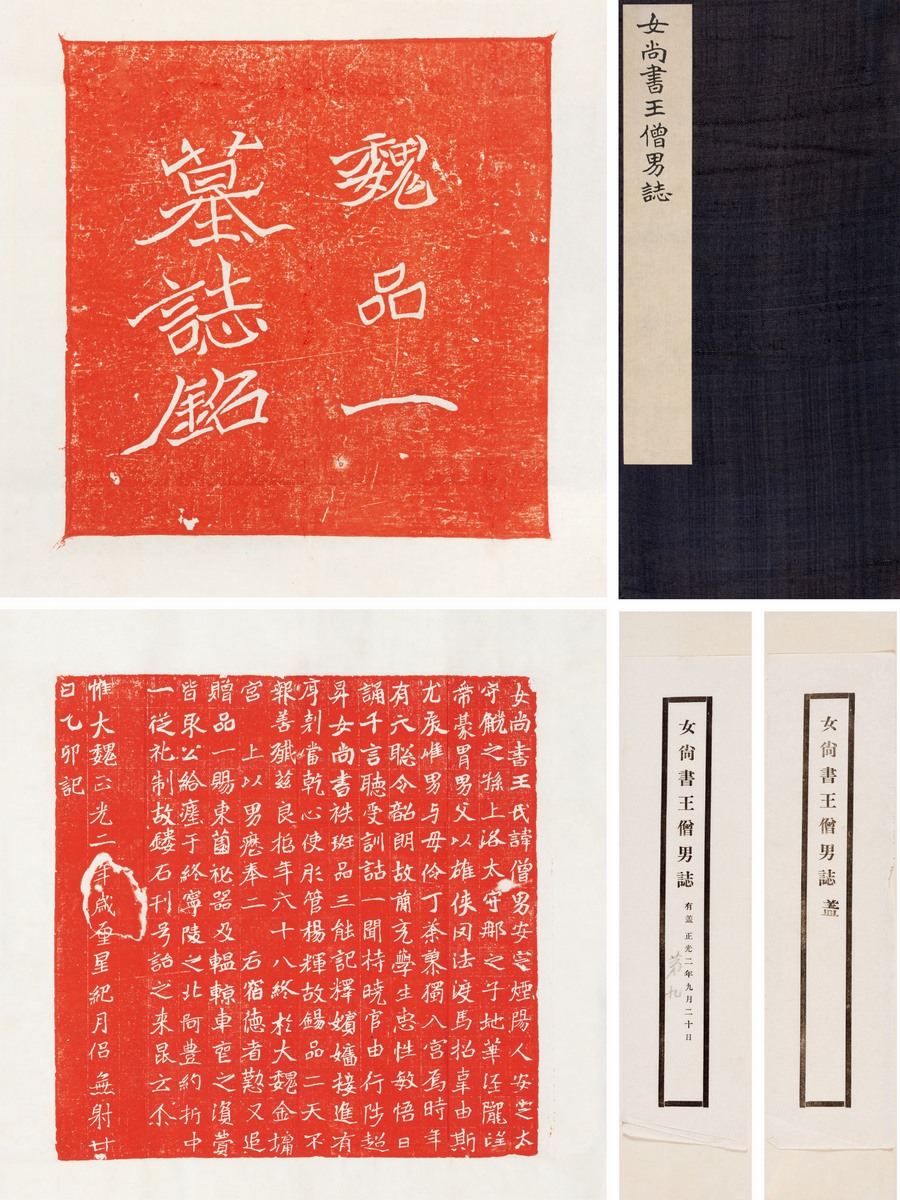 魏品一
墓誌銘
女尚書王僧男誌
女尚書王氏諱僧男安定煙陽人安定太
守毓之孫上洛太守那之子地華涇隴望
帶豪胄男父以雄俠罔法渡馬招辜由斯
尤戾唯男与母伶丁荼蓼獨入宮焉時年
有六聰令韶朗故簡充學生惠性敏悟日
誦千言聽受訓詁一聞持曉官由行陟超
昇女尚書秩班品三能記釋嬪嬙接進有
序剋當乾心使彤管楊輝故錫品二天不
報善殲茲良哲年六十八終於大魏金墉
宮 上以男歷奉二 后宿德者懃又追
贈品一賜東園祕器及轀輬車窆之資費
皆取公給瘞于終寧陵之北阿豊約折中
一從礼制故鏤石刊号詒之来昆云尒
惟大魏正光二年歲星紀月侶無射廿
日乙卯記
女尚書王僧男誌 有蓋 正光二年九月二十日
第九
女尚書王僧男誌 蓋